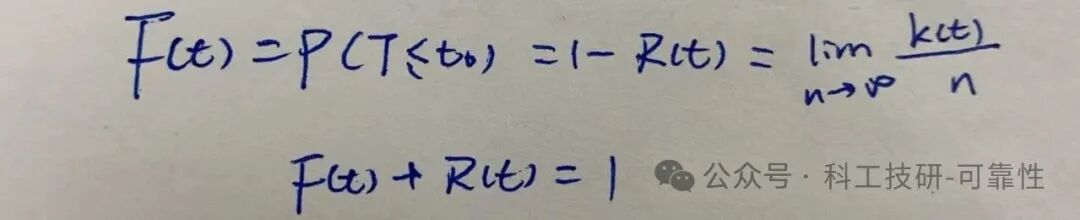 F(t) = P(T ≤ t₀) = 1 - R(t) = lim n→∞ k(t)/n
F(t) + R(t) = 1
公众号 · 科工技研-可靠性